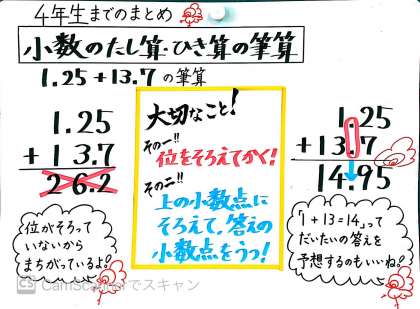 4年生までのまとめ
小数のたし算・ひき算の筆算
1.25+13.7の筆算
1.25
+ 13.7
26.2
位がそろって
いないから
まちがっているよ!
大切なこと!
その一!!
位をそろえてかく!
その二!!
上の小数点に
そろえて、答えの
小数点をうつ!
1.25
+ 13.7
14.95
「1+13=14」って
だいたいの答えを
予想するのもいいね!
CS CamScannerでスキャン